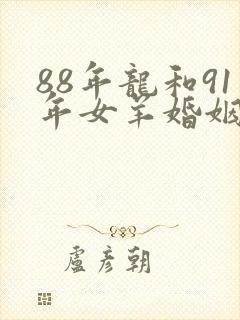 88年龍和91
年女羊婚姻
盧彥朝